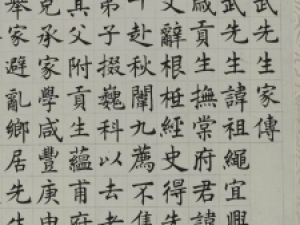 武先生家傳
武先生諱祖繩宜興
歲貢生撫棠府君諱
文辭根柢經史得先
赴秋闈九薦不售
弟子掇巍科以去者
其父附貢生蘊甫府
克承家學咸豐庚申
舉家避亂鄉居先生